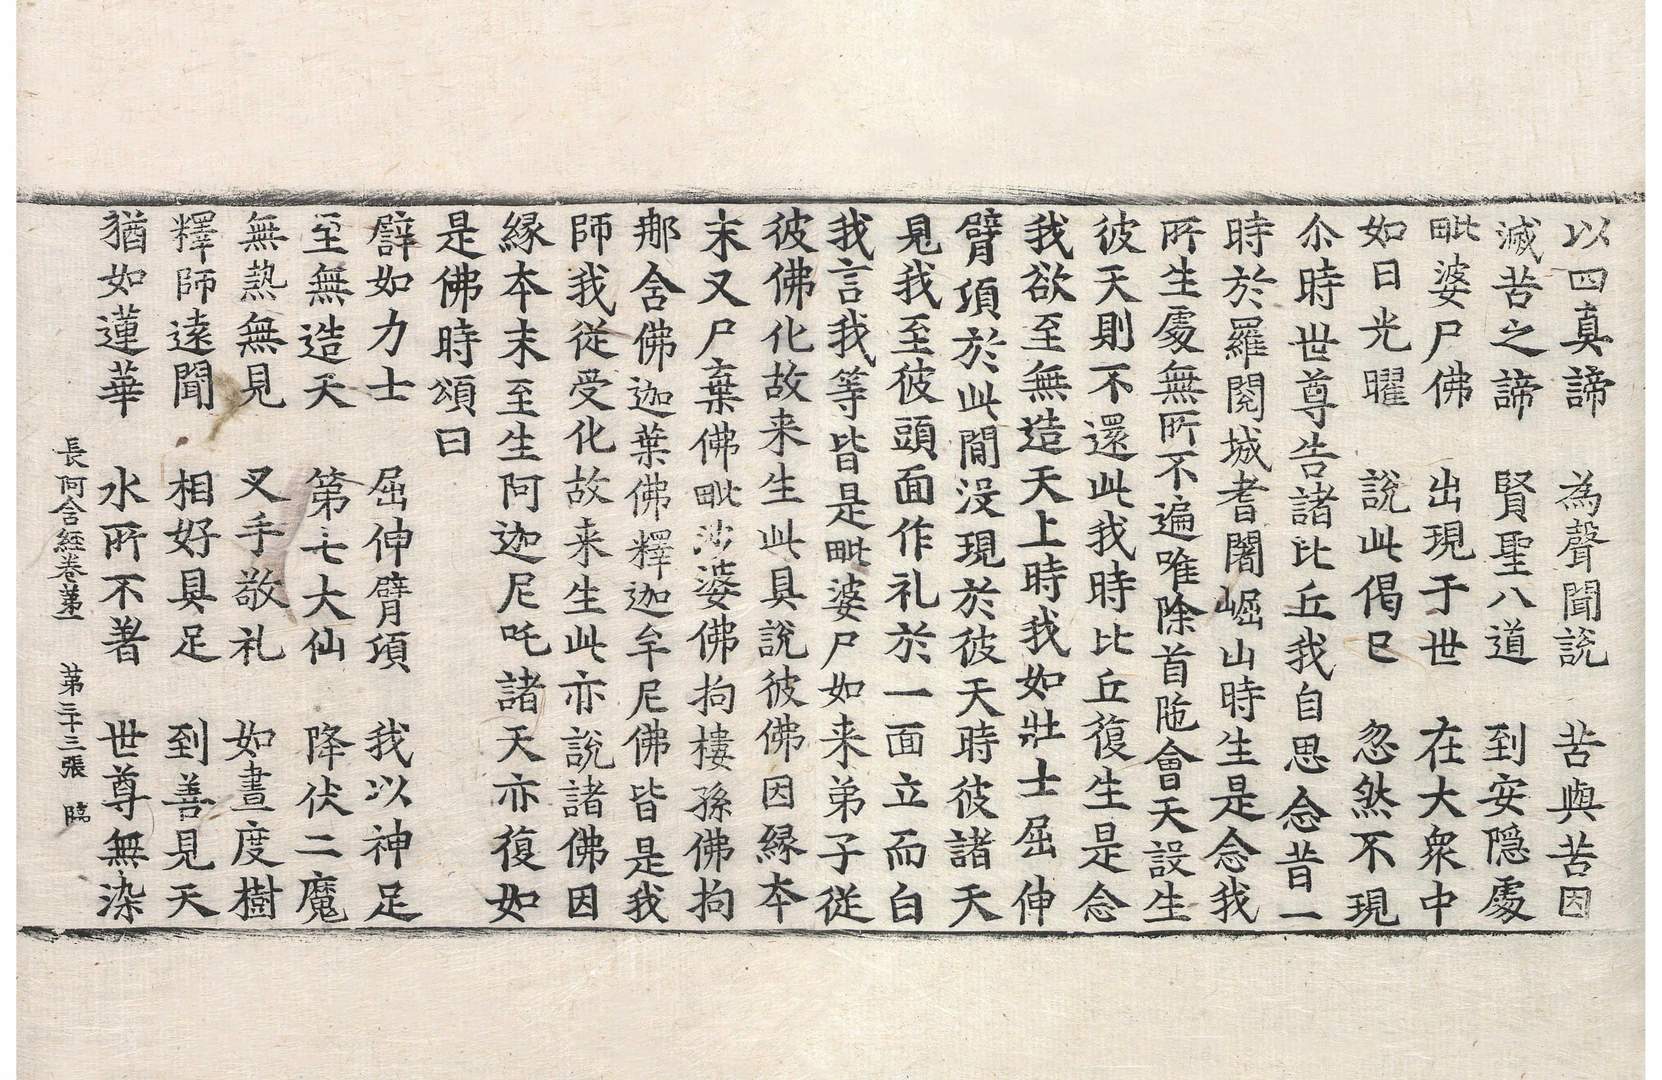 以四真諦　為聲聞說　苦與苦因
滅苦之諦　賢聖八道　到安隱處
毗婆尸佛　出現于世　在大衆中
如日光曜　說此偈已　忽然不現
尒時世尊告諸比丘我自思念昔一
時於羅閱城耆闍崛山時生是念我
所生處無所不遍唯除首陁會天設生
彼天則不還此我時比丘復生是念
我欲至無造天上時我如壯士屈伸
臂項於此閒沒現於彼天時彼諸天
見我至彼頭面作礼於一面立而白
我言我等皆是毗婆尸如来弟子從
彼佛化故来生此具說彼佛因緣本
末又尸棄佛毗沙婆佛拘樓孫佛拘
那含佛迦葉佛釋迦牟尼佛皆是我
師我從受化故来生此亦說諸佛因
緣本末至生阿迦尼吒諸天亦復如
是佛時頌曰
譬如力士　屈伸臂項　我以神足
至無造天　第七大仙　降伏二魔
無熱無見　叉手敬礼　如晝度樹
釋師遠聞　相好具足　到善見天
猶如蓮華　水所不著　世尊無染
長阿含經卷第一　第三十三張　臨